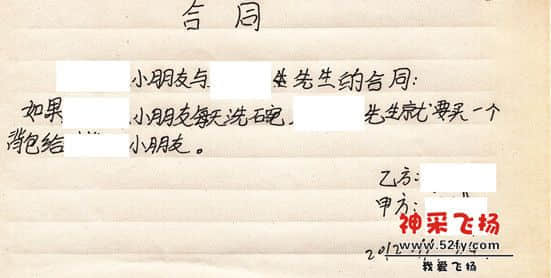 合同
小朋友与 先生的合同:
如果 小朋友每天洗碗, 先生就要买一个
背包给 小朋友。
乙方:
甲方:
神采飞扬
www.52fy.com
2012
我爱飞扬